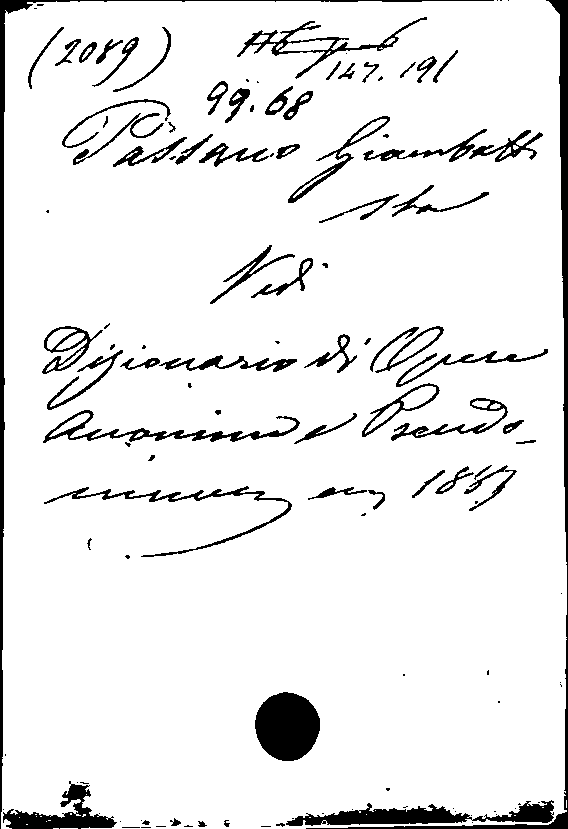 (2089)
147. 191
99. 68
Passano Giambatti
sta
Vedi
Dizionario di Opere
Anonime e Pseudo-
nime 1887